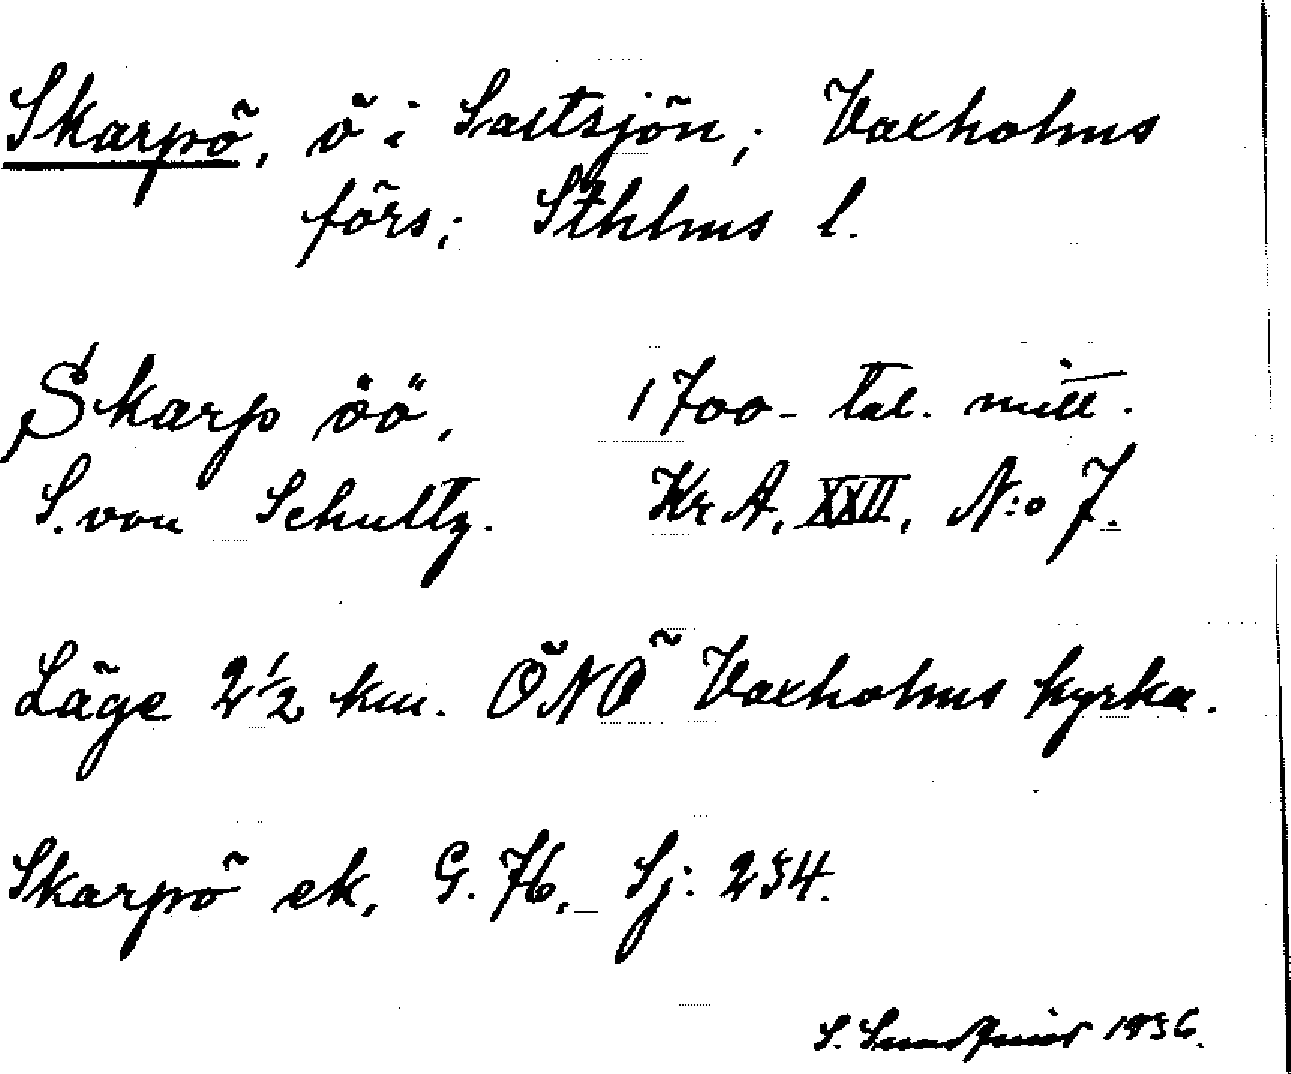 Skarpö, ö i Saltsjön; Vaxholms
förs; Sthlms l.
Skarp öö, 1700-tal. mitt.
S. von Schultz. Kr A, XXII, N:o 7.
Läge 2½ km. ÖNÖ Vaxholms kyrka.
Skarpö ek, G. 76, Sj: 234.
S. 1936.